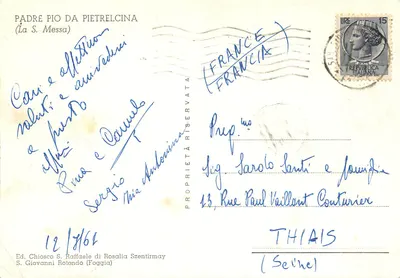 PADRE PIO DA PIETRELCINA
(La S. Messa)
Cari e affettuosi
saluti e arrivederci
a presto
Pina e Carmelo
Sergio
Mia Antonina
12/7/61
Ed. Chiosco S. Raffaele di Rosalia Szentirmay
S. Giovanni Rotondo (Foggia)
PROPRIETÀ RISERVATA
(FRANCE)
FRANCIA)
15
Preg.mo
Sig. Sarolo Santi e famiglia
13, Rue Paul Vaillant Couturier
THIAIS
(Seine)